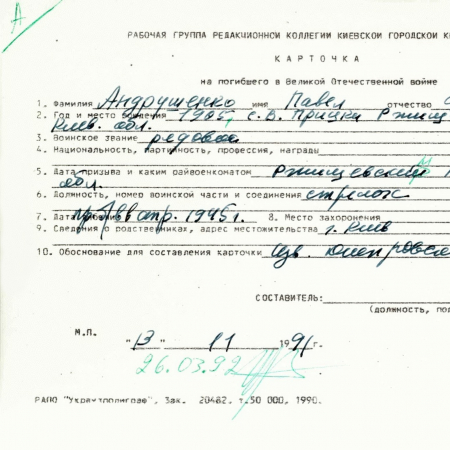 А
РАБОЧАЯ ГРУППА РЕДАКЦИОННОЙ КОЛЛЕГИИ КИЕВСКОЙ ГОРОДСКОЙ К
КАРТОЧКА
на погибшего в Великой Отечественной войне
1. Фамилия Андрушенко имя Павел отчество
2. Год и место рождения 1905, с. В. Прицки Ржищ
Киев. обл.
3. Воинское звание рядовой
4. Национальность, партийность, профессия, награды
5. Дата призыва и каким райвоенкоматом Ржищевский
обл.
6. Должность, номер воинской части и соединения стрелок
7. Дата гибели апр. 1945г. 8. Место захоронения
9. Сведения о родственниках, адрес местожительства г. Киев
10. Обоснование для составления карточки изв. Днепровск
СОСТАВИТЕЛЬ:
(должность, под
М.П.
"13" 11 1991г.
26.03.92
РАПО "Укрвузполиграф", Зак. 20482, т.50 000, 1990.